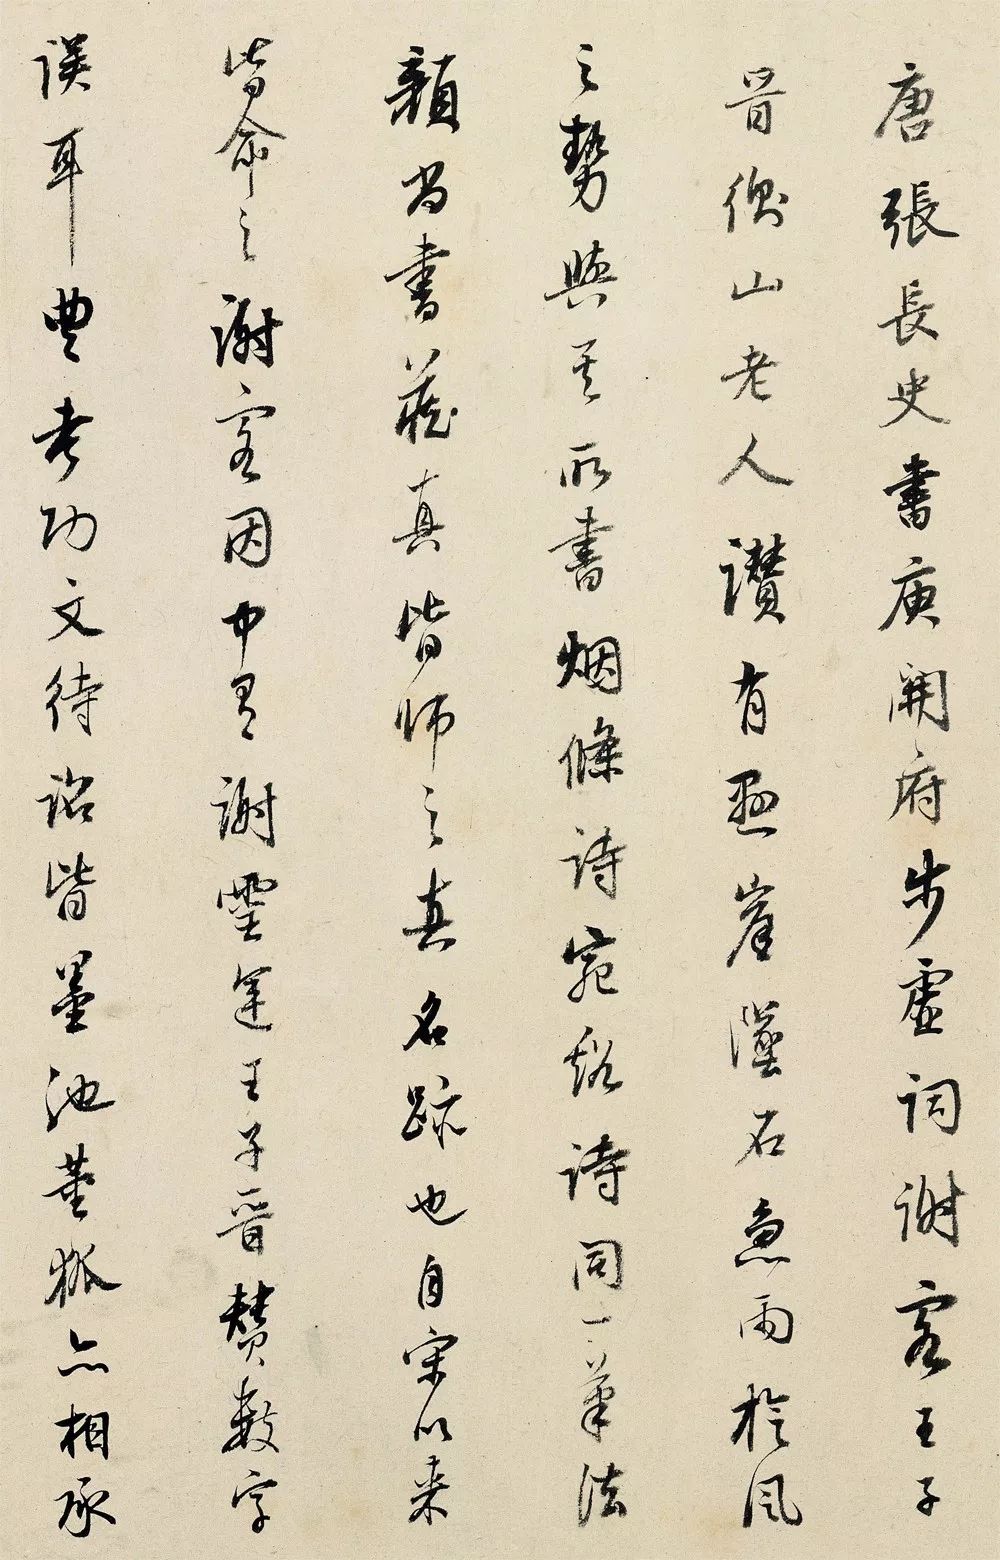 唐張長史書庾開府步虛詞謝客王子
晉衡山老人讚有懸崖墜石急雨旋風
之勢與其所書烟條詩宛谿詩同一筆法
顏尚書藏真皆師之真名跡也自宋以来
皆命之謝客因中有謝靈運王子晉贊數字
誤耳豐考功文待詔皆墨池董狐亦相承